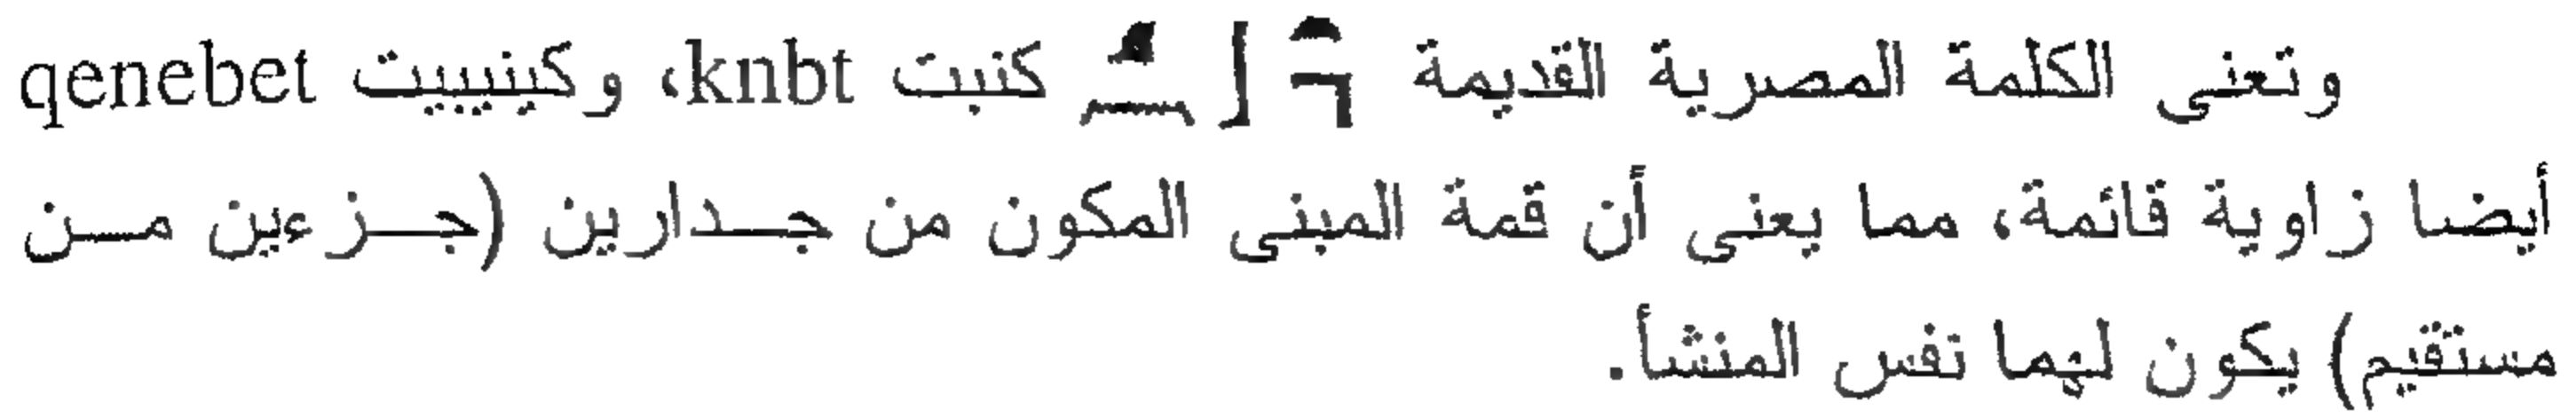 وتعنى الكلمة المصرية القديمة 𓈎𓈖𓃀𓏏𓘺 كنبت knbt، وكينيبيت qenebet
أيضا زاوية قائمة، مما يعنى أن قمة المبنى المكون من جدارين (جزءين من
مستقيم) يكون لهما نفس المنشأ.